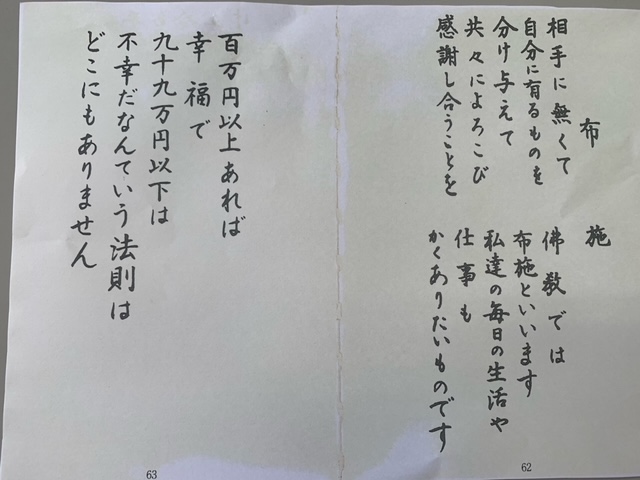 布施
相手に無くて
自分に有るものを
分け与えて
共々によろこび
感謝し合うことを
佛教では
布施といいます
私達の毎日の生活や
仕事も
かくありたいものです
62
百万円以上あれば
幸福で
九十九万円以下は
不幸だなんていう法則は
どこにもありません
63